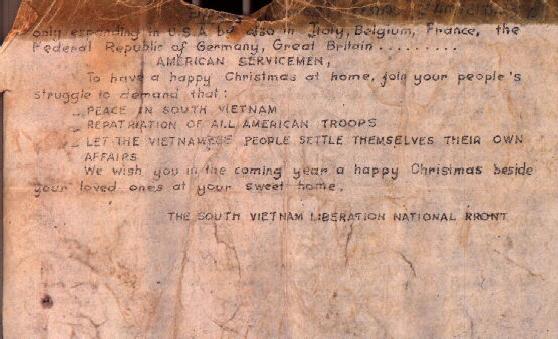 only expanding in U.S.A but also in Italy, Belgium, France, the
Federal Republic of Germany, Great Britain .........
AMERICAN SERVICEMEN,
To have a happy Christmas at home, join your people's
struggle to demand that :
_ PEACE IN SOUTH VIETNAM
_ REPATRIATION OF ALL AMERICAN TROOPS
_ LET THE VIETNAMESE PEOPLE SETTLE THEMSELVES THEIR OWN
AFFAIRS
We wish you in the coming year a happy Christmas beside
your loved ones at your sweet home.
THE SOUTH VIETNAM LIBERATION NATIONAL RRONT